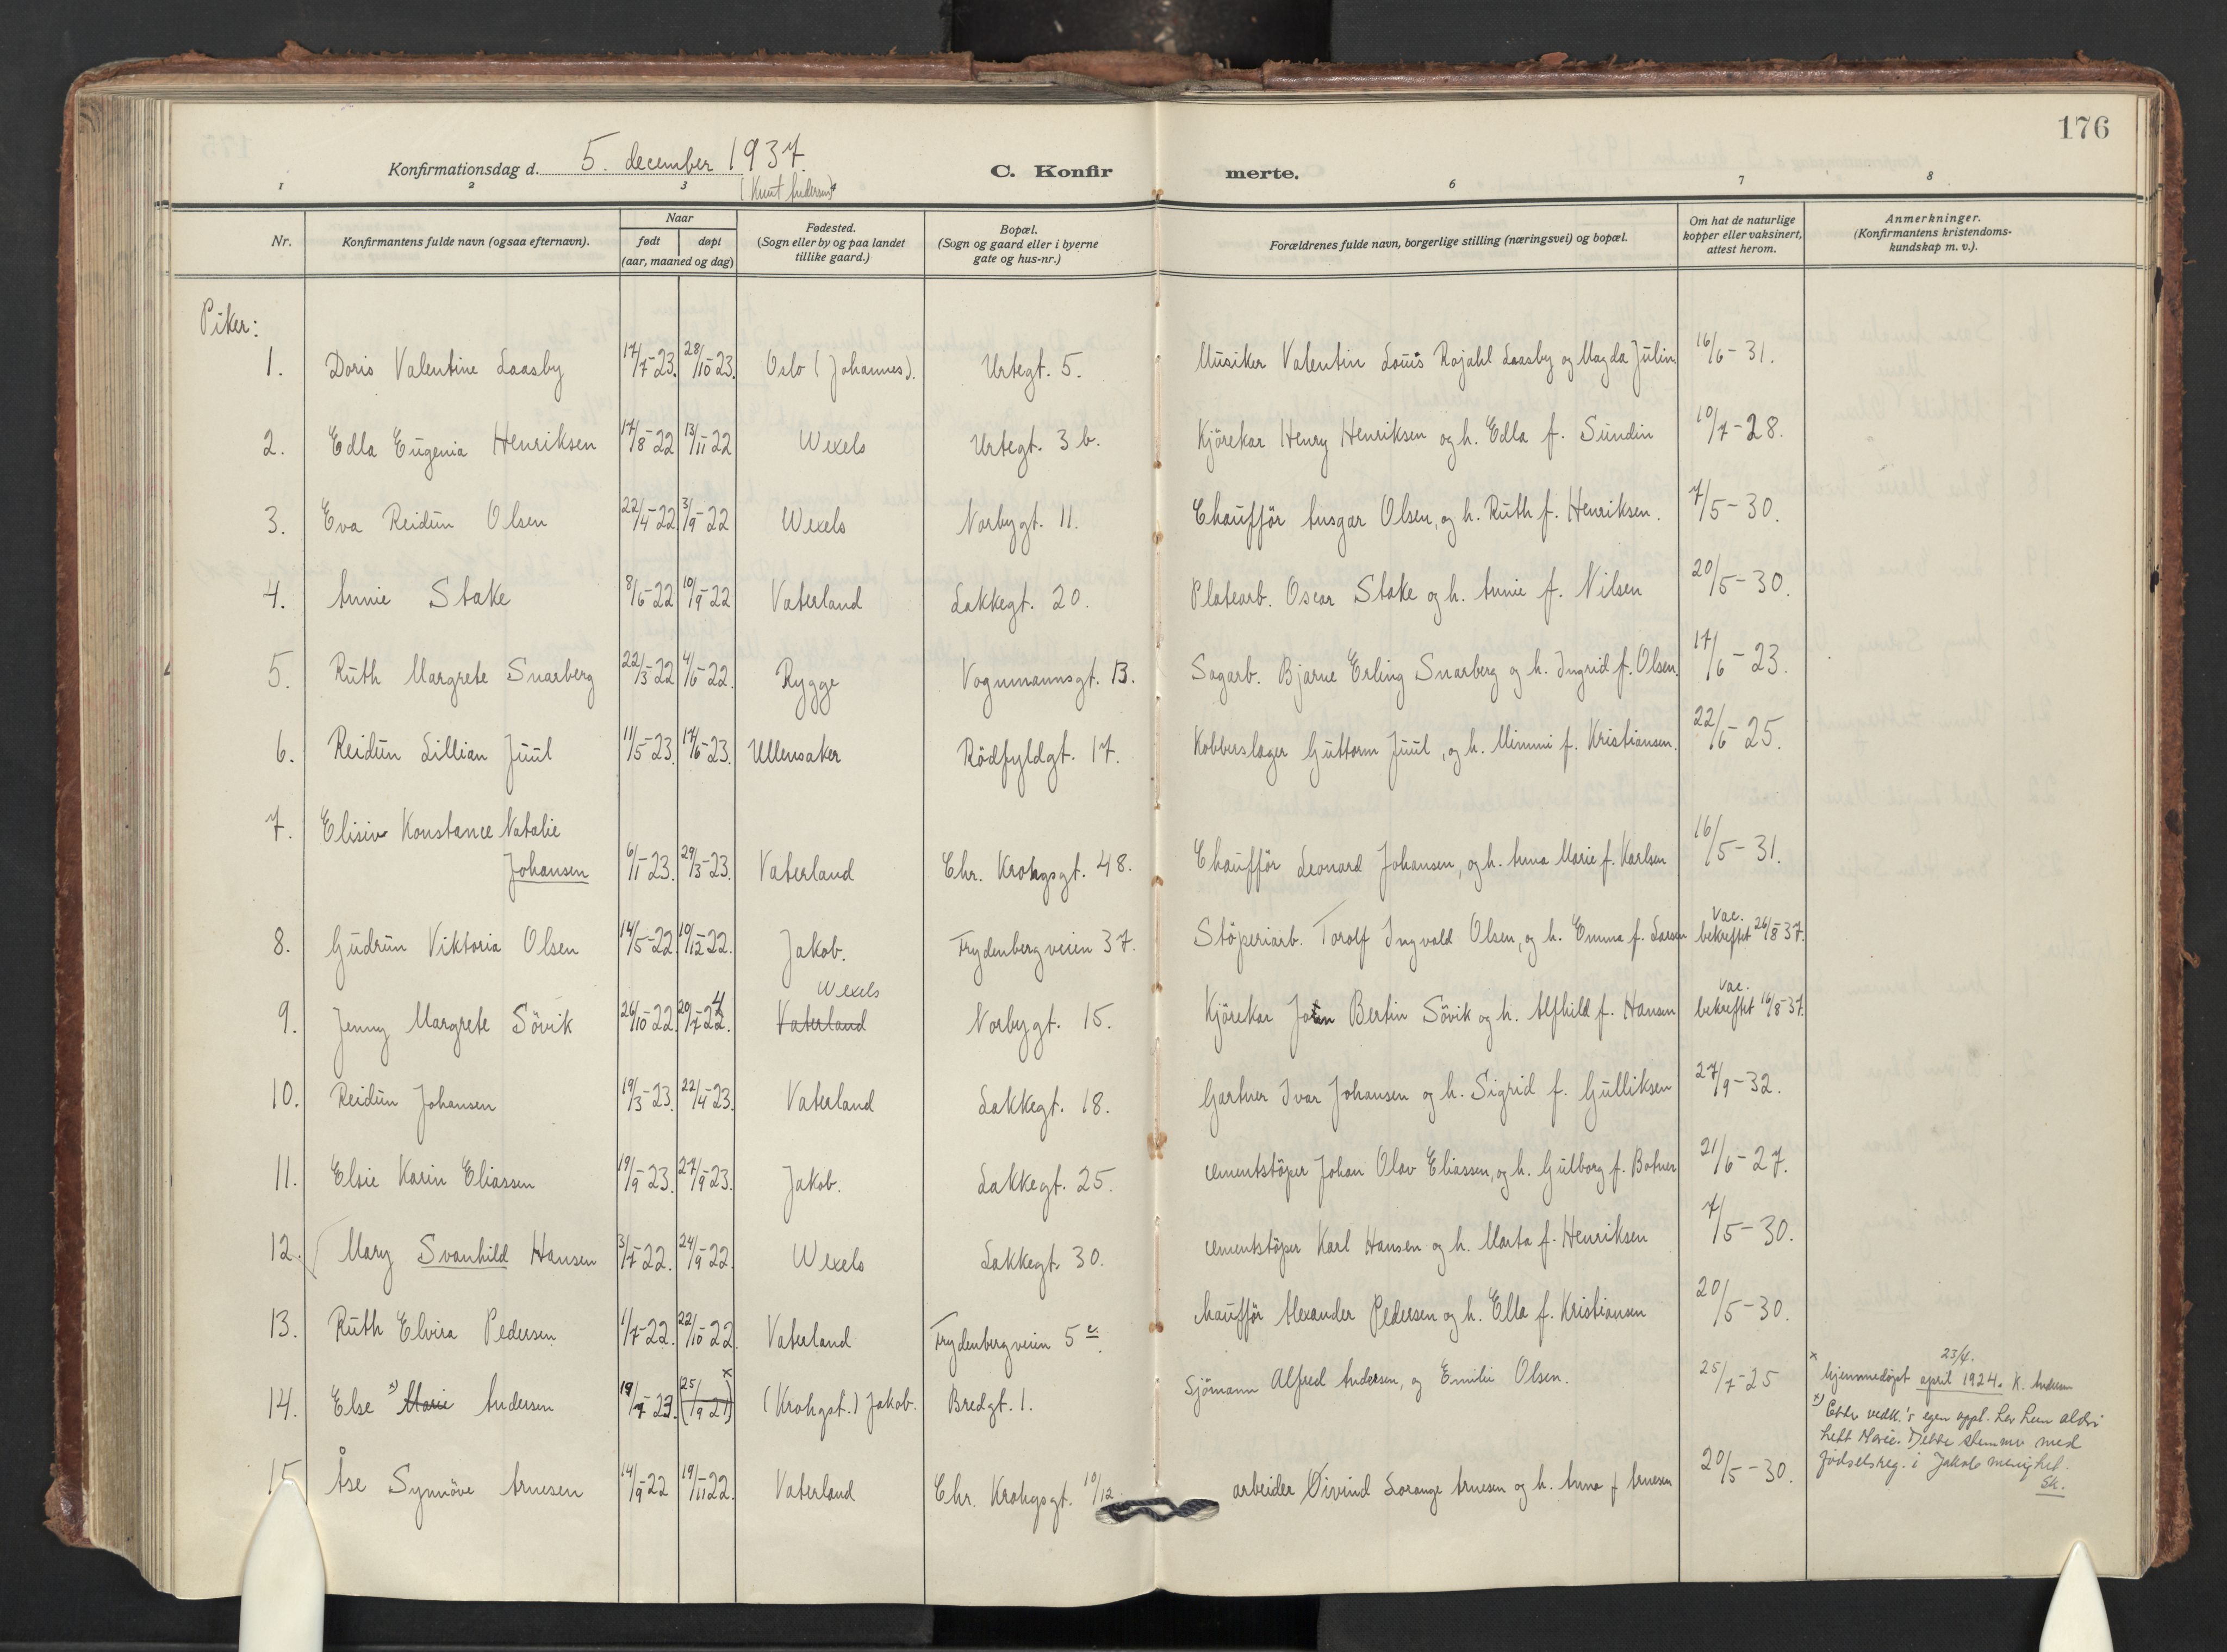 176
Konfirmationsdag d. 5. december 1937.
(Knut Andersen)
C. Konfirmerte.
1 2 3 4 6 7 8
Nr. | Konfirmantens fulde navn (ogsaa efternavn). | Naar født | døpt (aar, maaned og dag) | Fødested. (Sogn eller by og paa landet tillike gaard.) | Bopæl. (Sogn og gaard eller i byerne gate og hus-nr.) | Forældrenes fulde navn, borgerlige stilling (næringsvei) og bopæl. | Om hat de naturlige kopper eller vaksinert, attest herom. | Anmerkninger. (Konfirmantens kristendomskundskap m. v.).
Piker:
1. Doris Valentine Laasby 17/7-23. 28/10-23. Oslo (Johannes). Urtegt. 5. Musiker Valentin Louis Rojahl Laasby og Magda Julin 16/6-31.
2. Edla Eugenia Henriksen 17/8-22 13/11-22 Wexels Urtegt. 3 b. Kjörekar Henry Henriksen og h. Edla f. Sundin 10/7-28.
3. Eva Reidun Olsen 22/4-22 3/9-22 Wexels Norbygt. 11. Chaufför Ansgar Olsen, og h. Ruth f. Henriksen. 7/5-30.
4. Annie Stake 8/6-22 10/9-22 Vaterland Lakkegt. 20. Platearb. Oscar Stake og h. Annie f. Nilsen 20/5-30.
5. Ruth Margrete Snarberg 22/3-22 4/6-22. Rygge Vognmannsgt. 13. Sagarb. Bjarne Erling Snarberg og h. Ingrid f. Olsen. 17/6-23.
6. Reidun Lillian Juul 11/5-23. 17/6-23. Ullensaker Rödfyldgt. 17. Kobberslager Guttorm Juul, og h. Mimmi f. Kristiansen. 22/6-25.
7. Elisiv Konstance Natalie
Johansen 6/1-23. 29/3-23. Vaterland Chr. Krohgsgt. 48. Chaufför Leonard Johansen, og h. Anna Marie f. Karlsen 16/5-31.
8. Gudrun Viktoria Olsen 14/5-22 19/12-22. Jakob. Frydenbergveien 37. Stöperiarb. Torolf Ingvald Olsen, og h. Emma f. Larsen Vac. bekreftet 26/8 37.
9. Jenny Margrete Sövik 26/10-22 20/7-24. Wexels Vaterland Norbygt. 15. Kjörekar John Bertin Sövik og h. Alfhild f. Hansen Vac. bekreftet 16/8-37.
10. Reidun Johansen 19/3-23. 22/4-23. Vaterland Lakkegt. 18. Gartner Ivar Johansen og h. Sigrid f. Gulliksen 27/9-32.
11. Elsie Karin Eliassen 19/9-23. 27/9-23. Jakob. Lakkegt. 25. cementstöper Johan Olav Eliassen, og h. Gulborg f. Botner 21/6-27.
12. Mary Svanhild Hansen 3/7-22. 24/9-22. Wexels Lakkegt. 30. cementstöper Karl Hansen og h. Marta f. Henriksen 7/5-30.
13. Ruth Elvira Pedersen 1/7-22. 22/10-22 Vaterland Frydenbergveien 5 c. chaufför Alexander Pedersen og h. Ella f. Kristiansen 20/5-30.
14. Else x) Marie Andersen 19/7-23. (25/9 21) x (Krohgst.) Jakob. Bredgt. 1. Sjömann Alfred Andersen, og Emilie Olsen. 25/7-25
x 23/4. hjemmedöpt april 1924. K. Andersen
x) Etter vedk.'s egen oppl. har hun aldri
hett Marie. Dette stemmer med
födselsreg. i Jakob menighet.
Sk.
15 Åse Synnöve Arnesen 14/9-22 19/11-22. Vaterland Chr. Krohgsgt. 10/12. arbeider Öivind Lorange Arnesen og h. Anna f Arnesen 20/5-30.